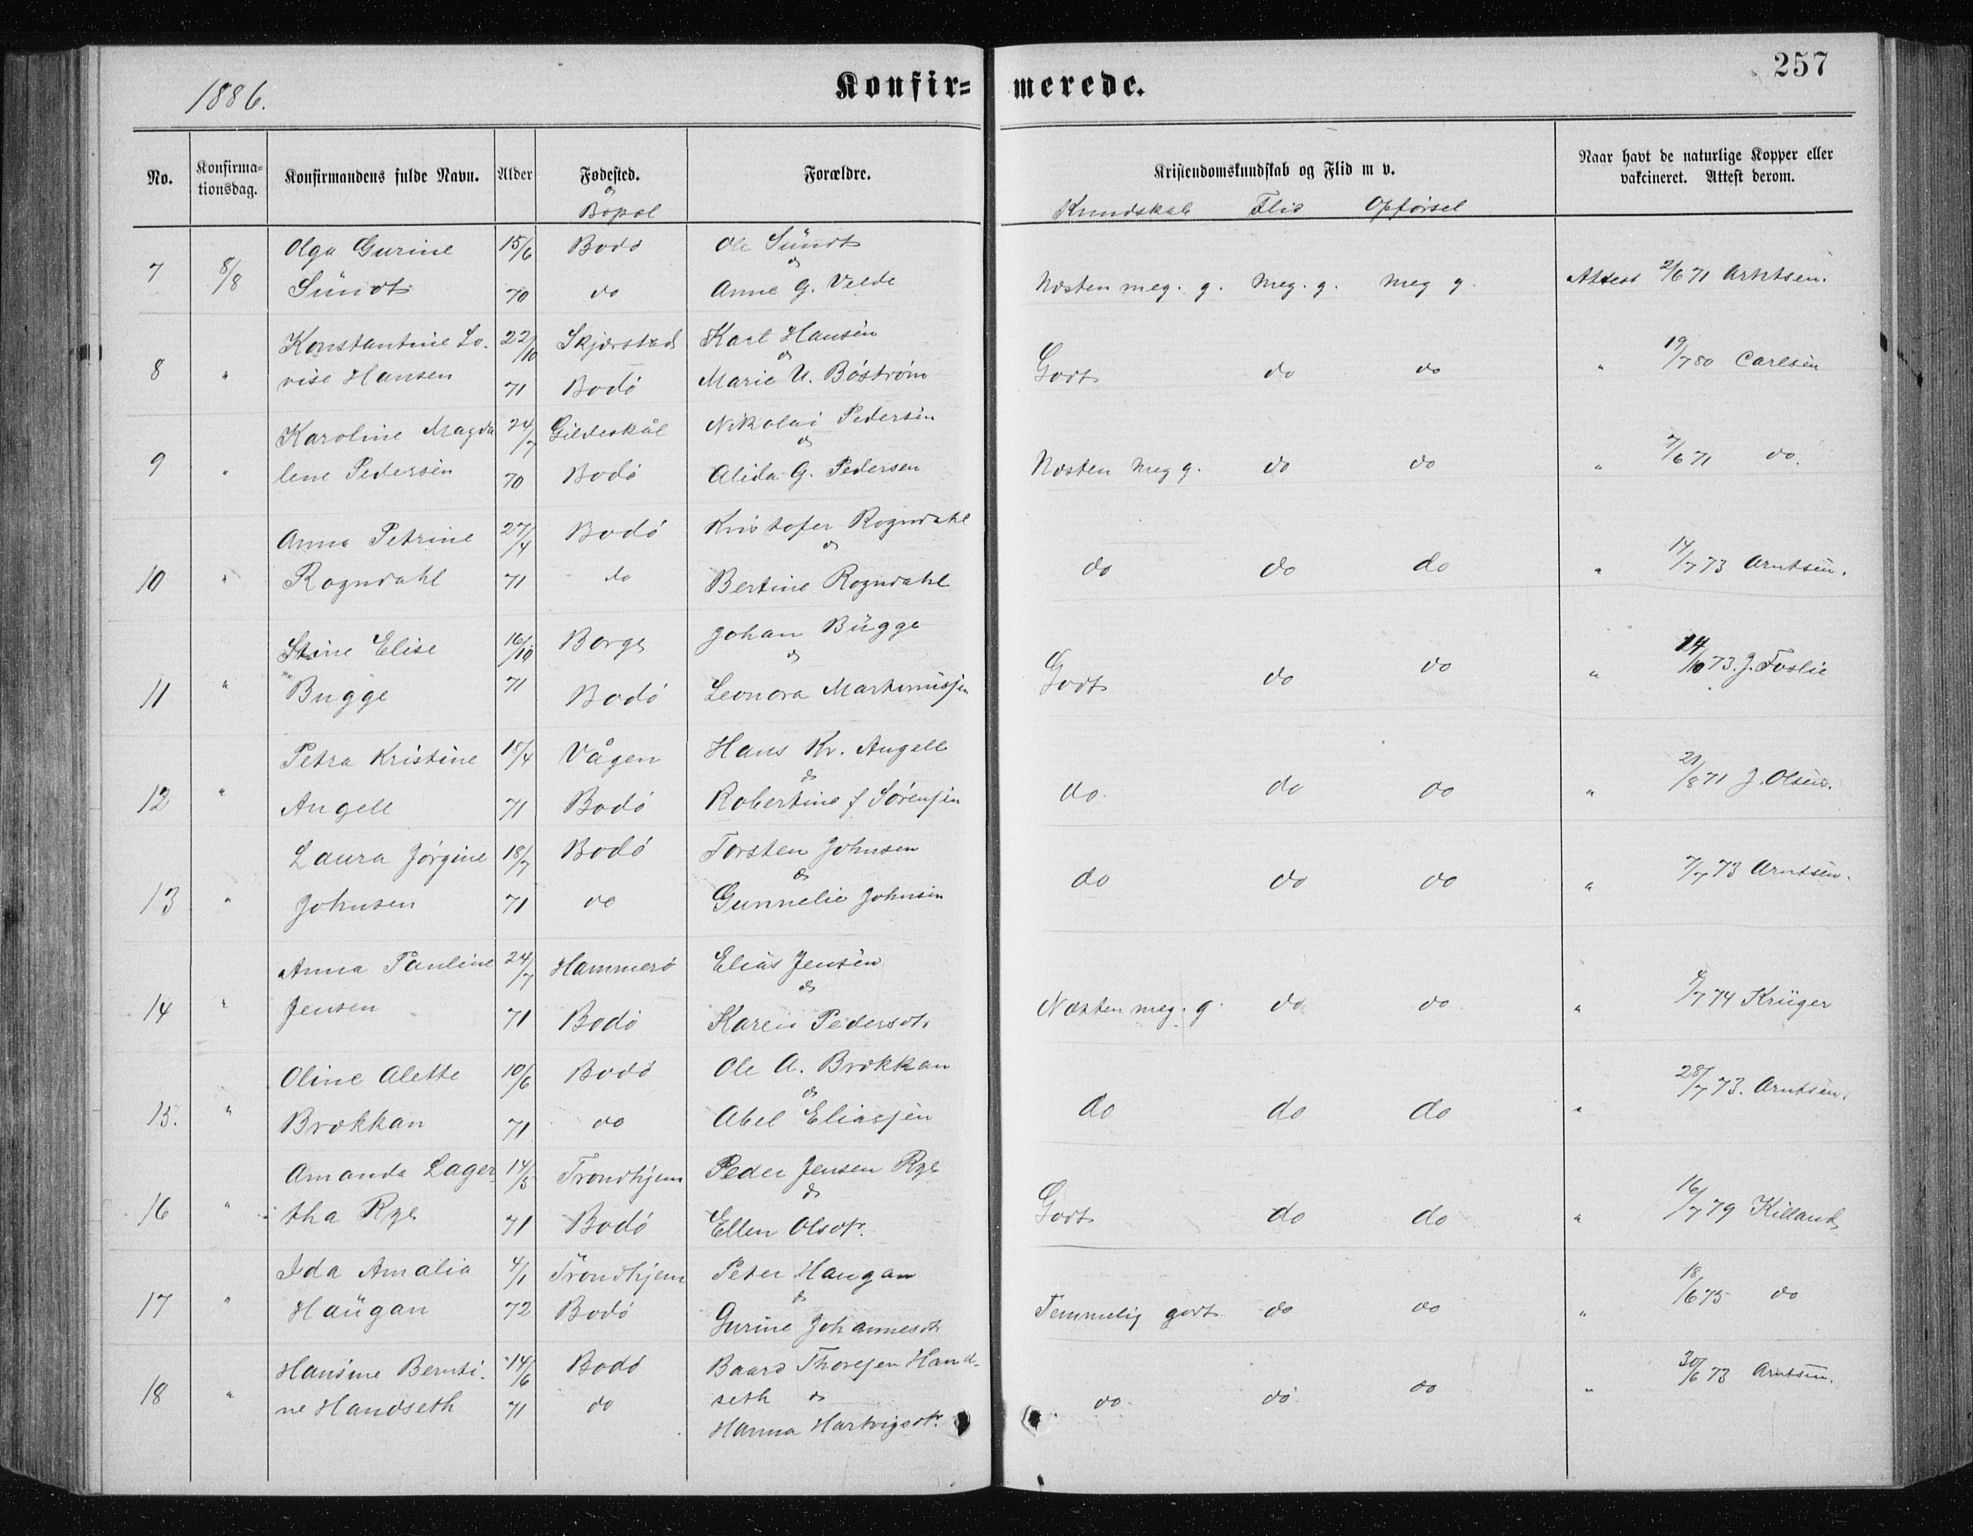 1886.
Konfir-
merede.
257
No.
Konfirma-
tionsdag.
Konfirmandens fulde Navn.
Alder
Fødested.
og
Bopæl
Forældre.
Kristendomskundskab og Flid m v.
Kundskab Flid Opførsel
Naar havt de naturlige Kopper eller
vakcineret. Attest derom.
Olga Gurine 15/6 Bodø Ole Sündt
7 8/8 og Næsten meg. g. Meg. g. Meg g. Attest 2/6 71 Arntsen.
Sündt 70 do Anne G. Velde
Konstantine Lo- 22/10 Skjærstad Karl Hansen
8 " og Godt do do " 19/7 80 Carlsen
vise Hansen 71 Bodø Marie U. Boström
Karoline Magda 24/7 Gildeskål Nikolai Pedersen
9 " og Næsten Meg g. do do " 7/6 71 do.
lene Pedersen 70 Bodø Alida G. Pedersen
Anna Petrine 27/4 Bodø Kristofer Rogndahl
10 " og do do do " 14/7 73 Arntsen.
Rogndahl 71 do Bertine Rogndahl
Stine Elise 16/10 Borge Johan Bügge
11 " og Godt do do " 73. J. Foslie
Bugge 71 Bodø Leonora Martinussen
Petra Kristine 18/4 Vågen Hans Kr. Angell
12 " og do. do do " 21/8 71 J. Olsen.
Angell 71 Bodø Robertine f Sørensen
Laura Jørgine 18/7 Bodø Torsten Johnsen
13 " og do do do " 7/7 73 Arntsen.
Johnsen 71 do Gunnelie Johnsen
Anna Pauline 24/7 Hammerø Elias Jensen
14 " og Næsten meg. g. do do " 74 Krüger
Jensen 71 Bodø Karen Pedersdt.
Oline Alette 10/6 Bodø Ole A. Brækkan
15. " og do do do " 28/7 73. Arntsen.
Brækkan 71 do Abel Eliassen
Amanda Lager- 14/5 Trondhjem Peder Jensen Rye
16 " og Godt do do " 16/7 79 Killand
tha Rye 71 Bodø Ellen Olsdt.
Ida Amalia 4/1 Trondhjem Peter Haugan
17 " og Temmelig godt do do " 18/6 75 do
Haügan 72 Bodø Gurine Johannesdt
Hansine Bernti- 14/6 Bodø Baard Thoresen Hand-
18 " seth og do do do " 30/6 73 Arntsen.
ne Handseth 71 do Hanna Hartvigsdt.